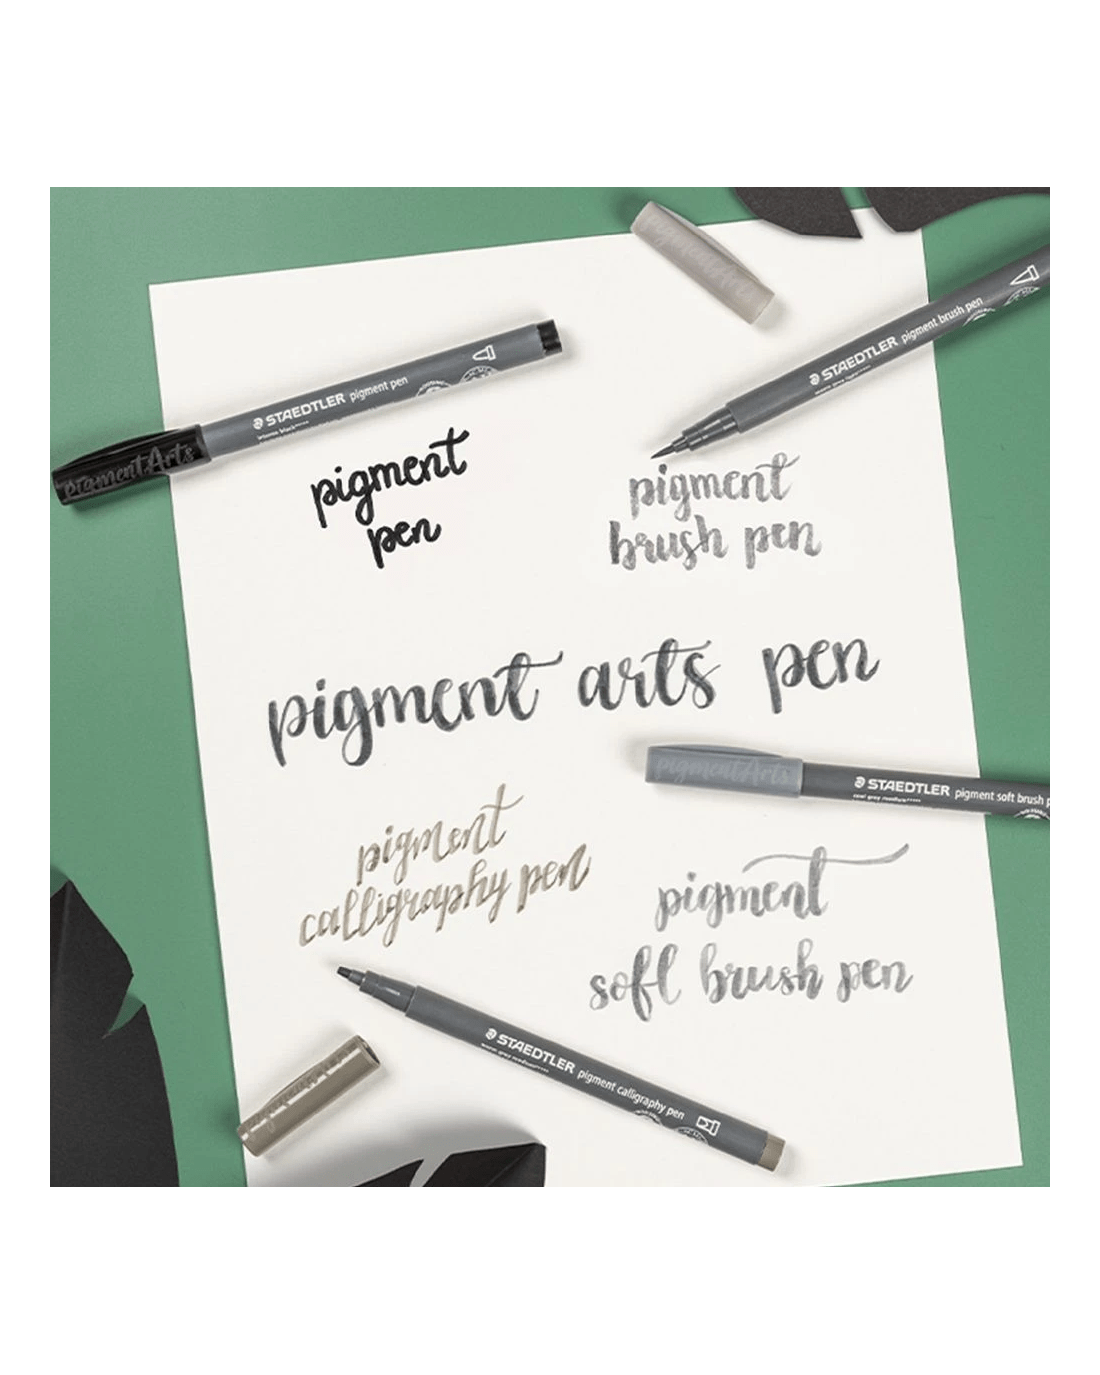 pigmentArts
STAEDTLER pigment brush pen
STAEDTLER pigment pen
pigmentArts
pigment
pen
pigment
brush pen
pigment arts pen
pigmentArts
STAEDTLER pigment soft brush p
pigment
calligraphy pen
pigment
soft brush pen
STAEDTLER pigment calligraphy pen